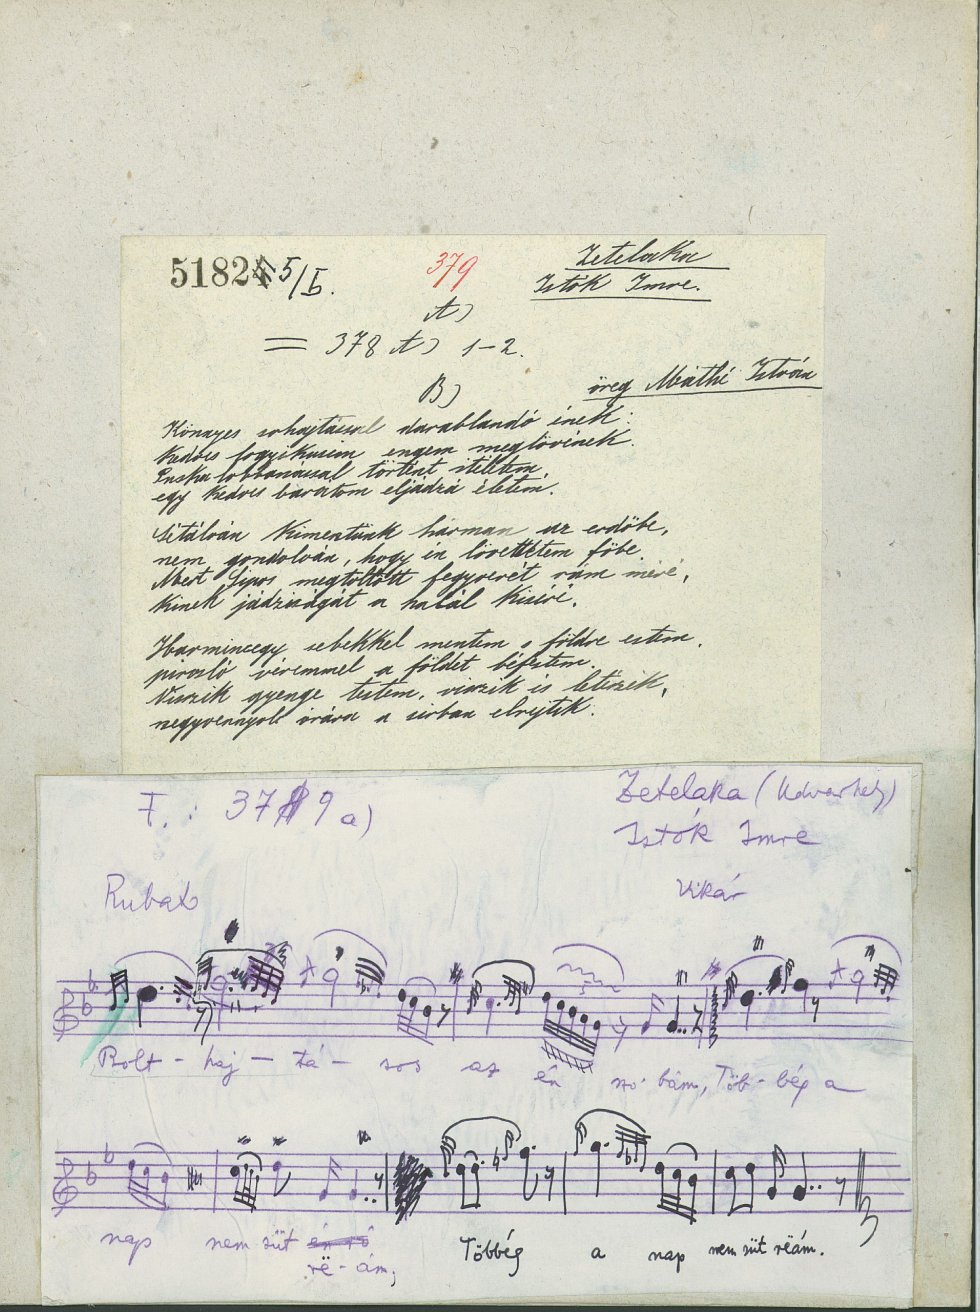 51824 5/I.
379
Zetelaka
Istók Imre.
A)
= 378 A) 1-2.
B)
öreg Máthé István
Könnyes sohajtással darablandó ének.
Kedves fogyikusim engem meglövének.
Puska lobbanással történt itéletem,
egy kedves barátom eljádzá életem.
Sétálván kimentünk hárman az erdőbe,
nem gondolván, hogy én lövettetem főbe.
Mert Sipos megtöltött fegyverét rám méré,
kinek jádziságát a halál kiséré.
Harmincegy sebekkel mentem s földre estem,
pirosló véremmel a földet béfestem.
Viszik gyenge testem, viszik is letészik,
negyvennyolc órára a sirban elrejtik.
F.: 379 a)
Zetelaka (Udvarhely)
Istók Imre
Vikár
Rubato
Bolt - haj - tá - sos az én szo- bám, Töb - bég a
nap nem süt én rö
rë - ám;
Többég a nap nem süt rëám.